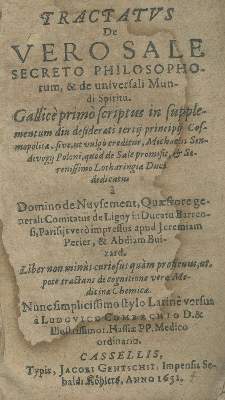 TRACTATVS
De
VERO SALE
SECRETO PHILOSOPHO-
rum, & de universali Mun-
di Spiritu.
Gallicè primo scriptus in supple-
mentum diu desiderati tertij principij Cos-
mopolitæ, sive, ut vulgò creditur, Michaelis Sen-
divogij Poloni, quod de Sale promisit, & Se-
renissimo Lotharingiæ Duci
dedicatus
à
Domino de Nuysement, Quæstore ge-
nerali Comitatus de Ligny in Ducatu Barren-
si, Parisijs verò impressus apud Jeremiam
Perier, & Abdiam Bui-
zard.
Liber non minùs curiosus quàm proficuus, ut-
pote tractans de cognitione veræ Medi-
cinæ Chemicæ.
Nunc simplicissimo stylo Latinè versus
à LUDOVICO COMBACHIO D. &
Illustrissimor. Hassiæ PP. Medico
ordinario.
CASSELLIS,
Typis, JACOBI GENTSCHII. Impensis Se-
baldi Köhlers, ANNO 1651.